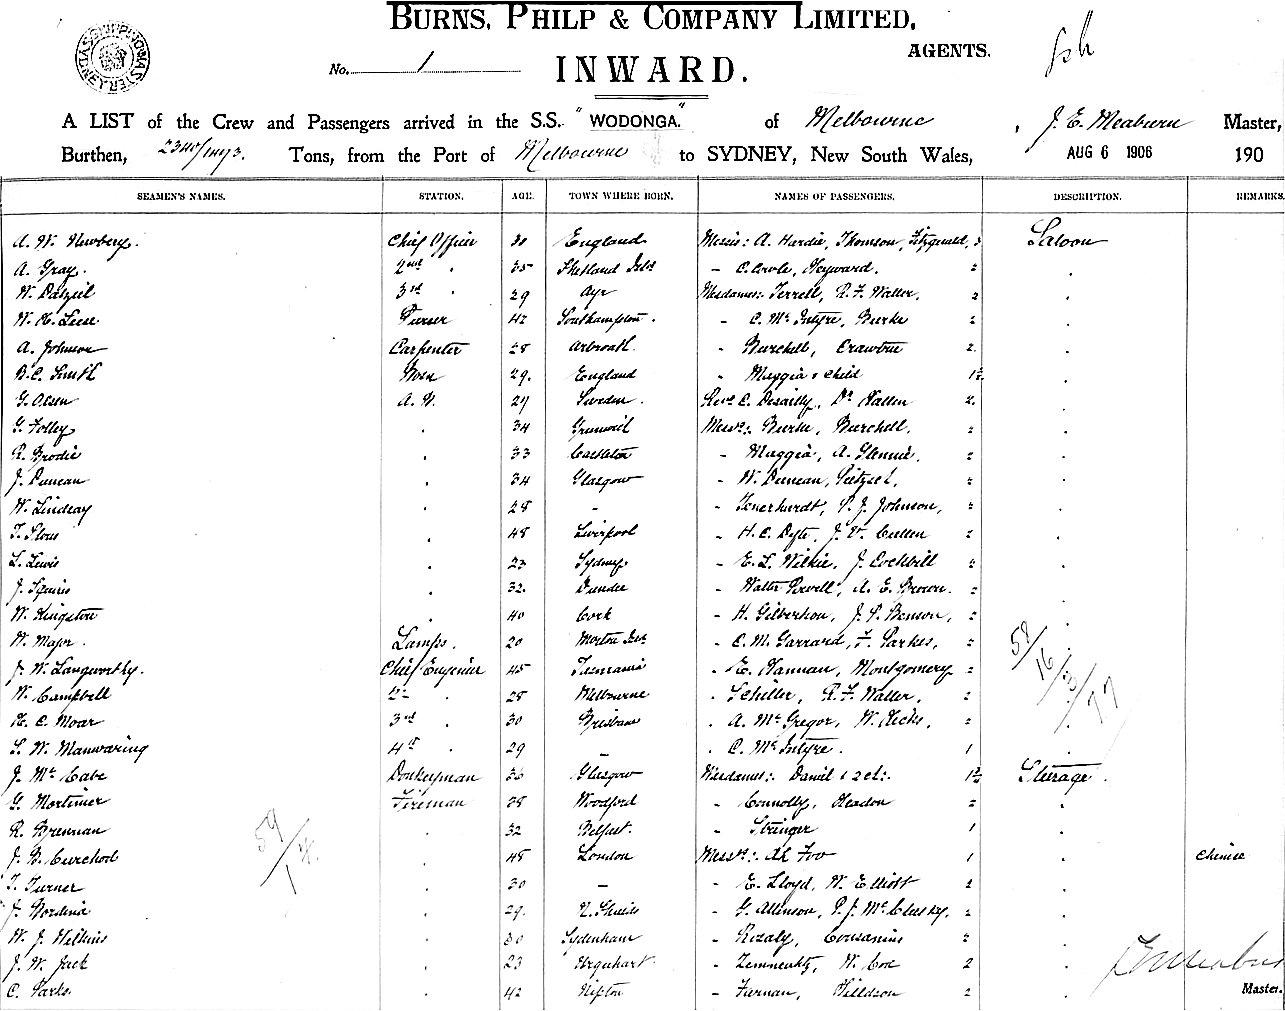 BURNS, PHILP & COMPANY LIMITED,
AGENTS.
No. 1
INWARD.
A LIST of the Crew and Passengers arrived in the S.S. "WODONGA." of Melbourne, J. E. Meaburn Master,
Burthen, 2340/1473 Tons, from the Port of Melbourne to SYDNEY, New South Wales, AUG 6 1906 190
SEAMEN'S NAMES. STATION. AGE. TOWN WHERE BORN. NAMES OF PASSENGERS. DESCRIPTION. REMARKS.
A. W. Newbery. Chief Officer England Messrs: A. Hardie, Thomson, Fitzgerald, 3 Saloon
A. Gray. 2nd " 35 Shetland Isls - C. Cowle, Heyward. 2
W. Dalziel 3rd " 29 Ayr Mesdames: Terrell, R. F. Waller, 2
W. H. Leese Purser 42 Southampton. - C. Mc Intyre, Burke 2
A. Johnson Carpenter 28 Arbroath. - Burchell, Crawbue 2.
B. C. Smith Bosn 29. England - Maggia & Child 1½
G. Olsen A. B. 27 Sweden. Revd C. Desailly, Dr Hallen 2.
G. Folley 34 Messrs: Burke, Burchell, 2
R. Brodie 33 - Maggia, A. Glennie, 2
J. Duncan 34 Glasgow - W. Duncan, 2
W. Lindsay 28 - - P. J. Johnson, 2
T. 48 Liverpool - H. C. Dyte, J. V. Cullen 2
L. Lewis 23 Sydney - E. L. Wilkie, J. Cockbill 2
J. Squires 32. Dundee - Walter Powell, A. E. Brown. 2
W. Kingston 40 Cork - H. J. P. Benson, 2
W. Major. Lamps. 20 - C. M. Garrard, F. Parkes, 2
J. W. Langworthy. Chief Engineer 45 Tasmania - E. Hannan, Montgomery 2
W. Campbell 2nd " 28 Melbourne - Schiller, R. F. Waller, 2
H. C. Moar 3rd " 30 Brisbane - A. Mc Gregor, W. Hicks, 2
S. W. Manwaring 4th " 29 - - C. Mc Intyre. 1
J. Mc Cabe Donkeyman 36 Glasgow Mesdames: Daniel & 2 ch: Steerage.
G. Mortimer Fireman 38 Woodford - Connolly, Headon 2
R. Brennan 32 Belfast. - Stringer 1
J. B. Curchod 48 London Messrs: Ah Foo 1 Chinese
T. Turner 30 - - E. Lloyd, W. Elliott 2
J. 29. N. Shields - G. Allinson, P. J. Mc Clusky. 2
W. J. Wilkins 30 Sydenham - Rozaly, Cousanins 2
J. W. Jack 23 Urquhart. - W. Cox 2
C. Parks. 42 - 2
59/16/20/77
59/
J E Meaburn
Master.